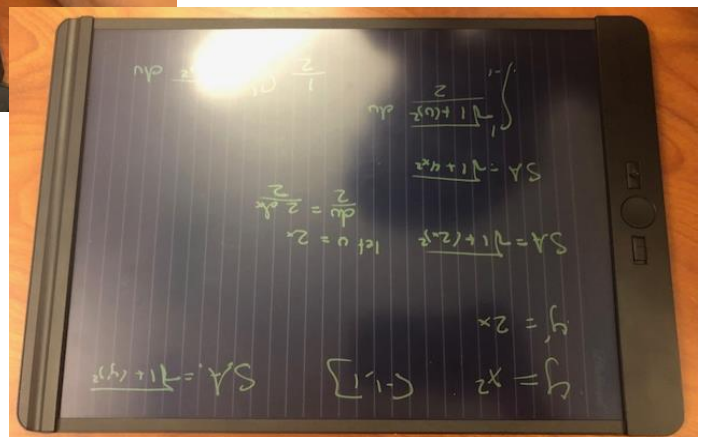 y = x² [-1,1] S.A. = √1+(y')²
y' = 2x
SA = √1+(2x)² let u = 2x
du/2 = 2dx/2
SA = √1+4x²
∫₋₁¹ √1+(u)²/2 du
1/2 du